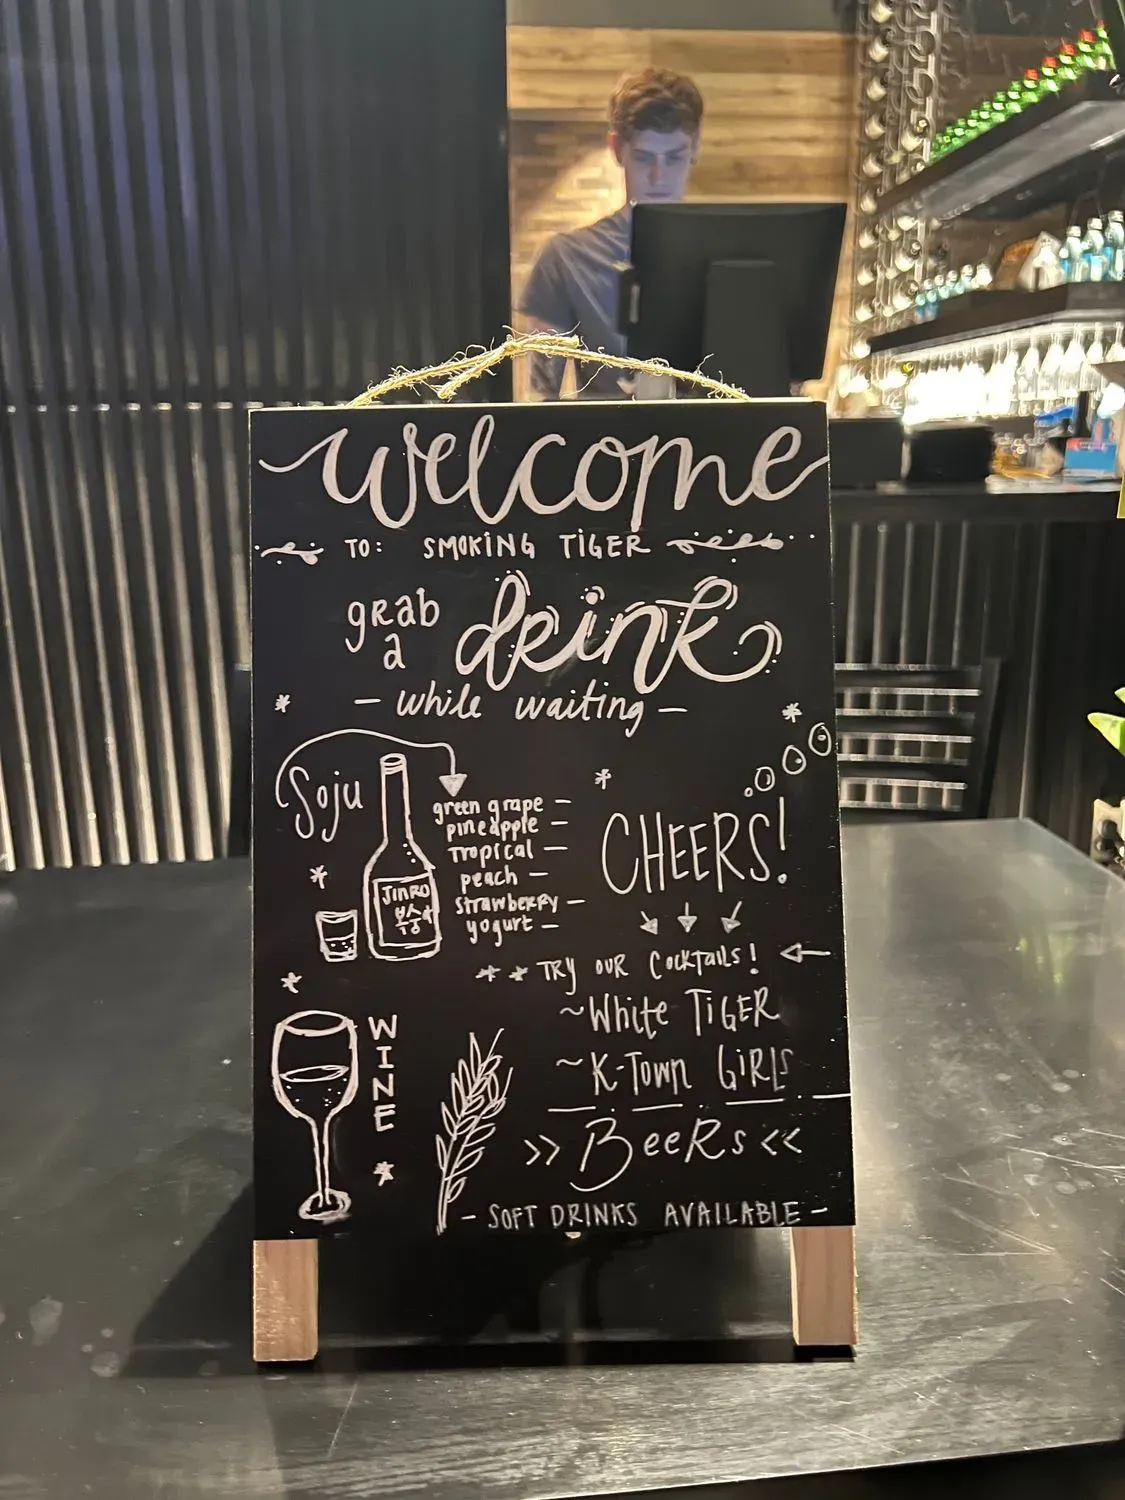 welcome
TO: SMOKING TIGER
grab
a
drink
- while waiting -
Soju
green grape -
pineapple -
Tropical -
peach -
strawberry -
yogurt -
JINRO
CHEERS!
** TRY OUR COCKTAILS!
~White TIGER
~K-Town GIRLS
WINE
>> BeeRs <<
- SOFT DRINKS AVAILABLE -